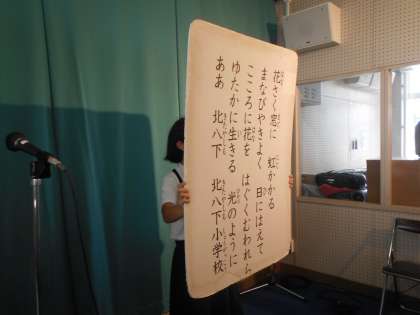 花さく窓に 虹かかる
まなびやきよく 日にはえて
こころに花を はぐくむわれら
ゆたかに生きる 光のように
ああ 北八下 北八下小学校